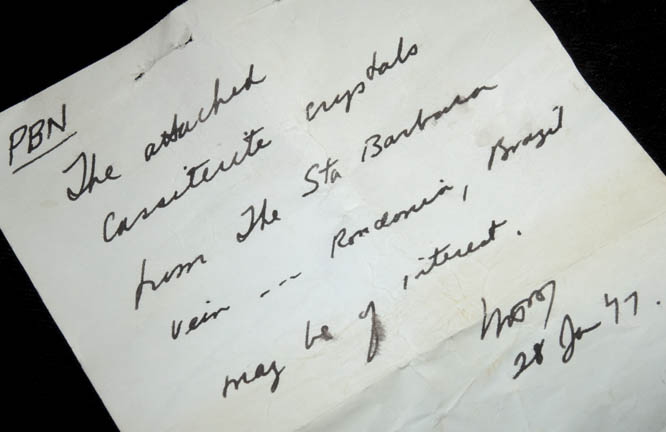 PBN
The attached
cassiterite crystals
from The Sta Barbara
vein --- Rondonia, Brazil
may be of interest.
28 Jan 47.